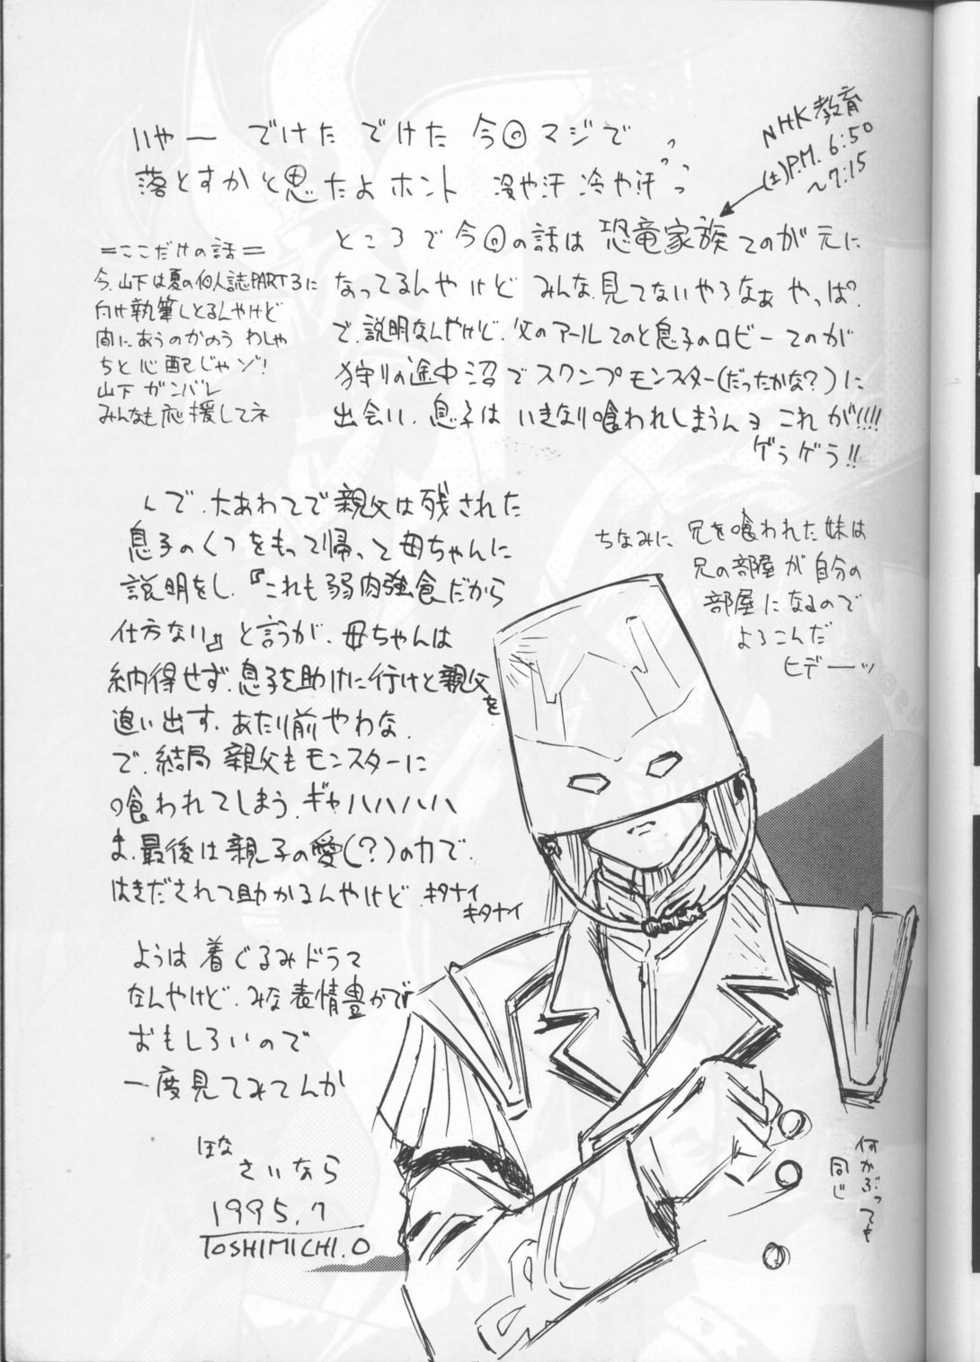 いやー でけた でけた 今回マジで
落とすかと思たよホント 冷や汗 冷や汗っ
NHK教育
(土)P.M. 6:50
～7:15
ところで今回の話は 恐竜家族てのが元に
なってるんやけど みんな見てないやろなぁ やっぱ。
で、説明なんやけど、父のアールてのと息子のロビーてのが
狩りの途中沼でスワンプモンスター(だったかな?)に
出会い、息子は いきなり喰われしまうんヨ これが!!!!
ゲラゲラ!!
=ここだけの話=
今、山下は夏の個人誌PART3に
向け執筆しとるんやけど
間にあうのかのう わしゃ
ちと心配じゃゾ!
山下 ガンバレ
みんなも応援してネ
んで、大あわてで親父は残された
息子のくつをもって帰って母ちゃんに
説明をし、『これも弱肉強食だから
仕方ない』と言うが、母ちゃんは
納得せず、息子を助けに行けと親父を
追い出す、あたり前やわな、
で、結局 親父もモンスターに
喰われてしまう、ギャハハハハ
ま、最後は親子の愛(?)の力で、
はきだされて助かるんやけど、キタナイ
キタナイ
ちなみに、兄を喰われた妹は
兄の部屋が自分の
部屋になるので
よろこんだ
ヒデーッ
ようは着ぐるみドラマ
なんやけど、みな表情豊かで
おもしろいので
一度見てみてんか
ほな
さいなら
1995.7
TOSHIMICHI.O
何かぶっても
同じ